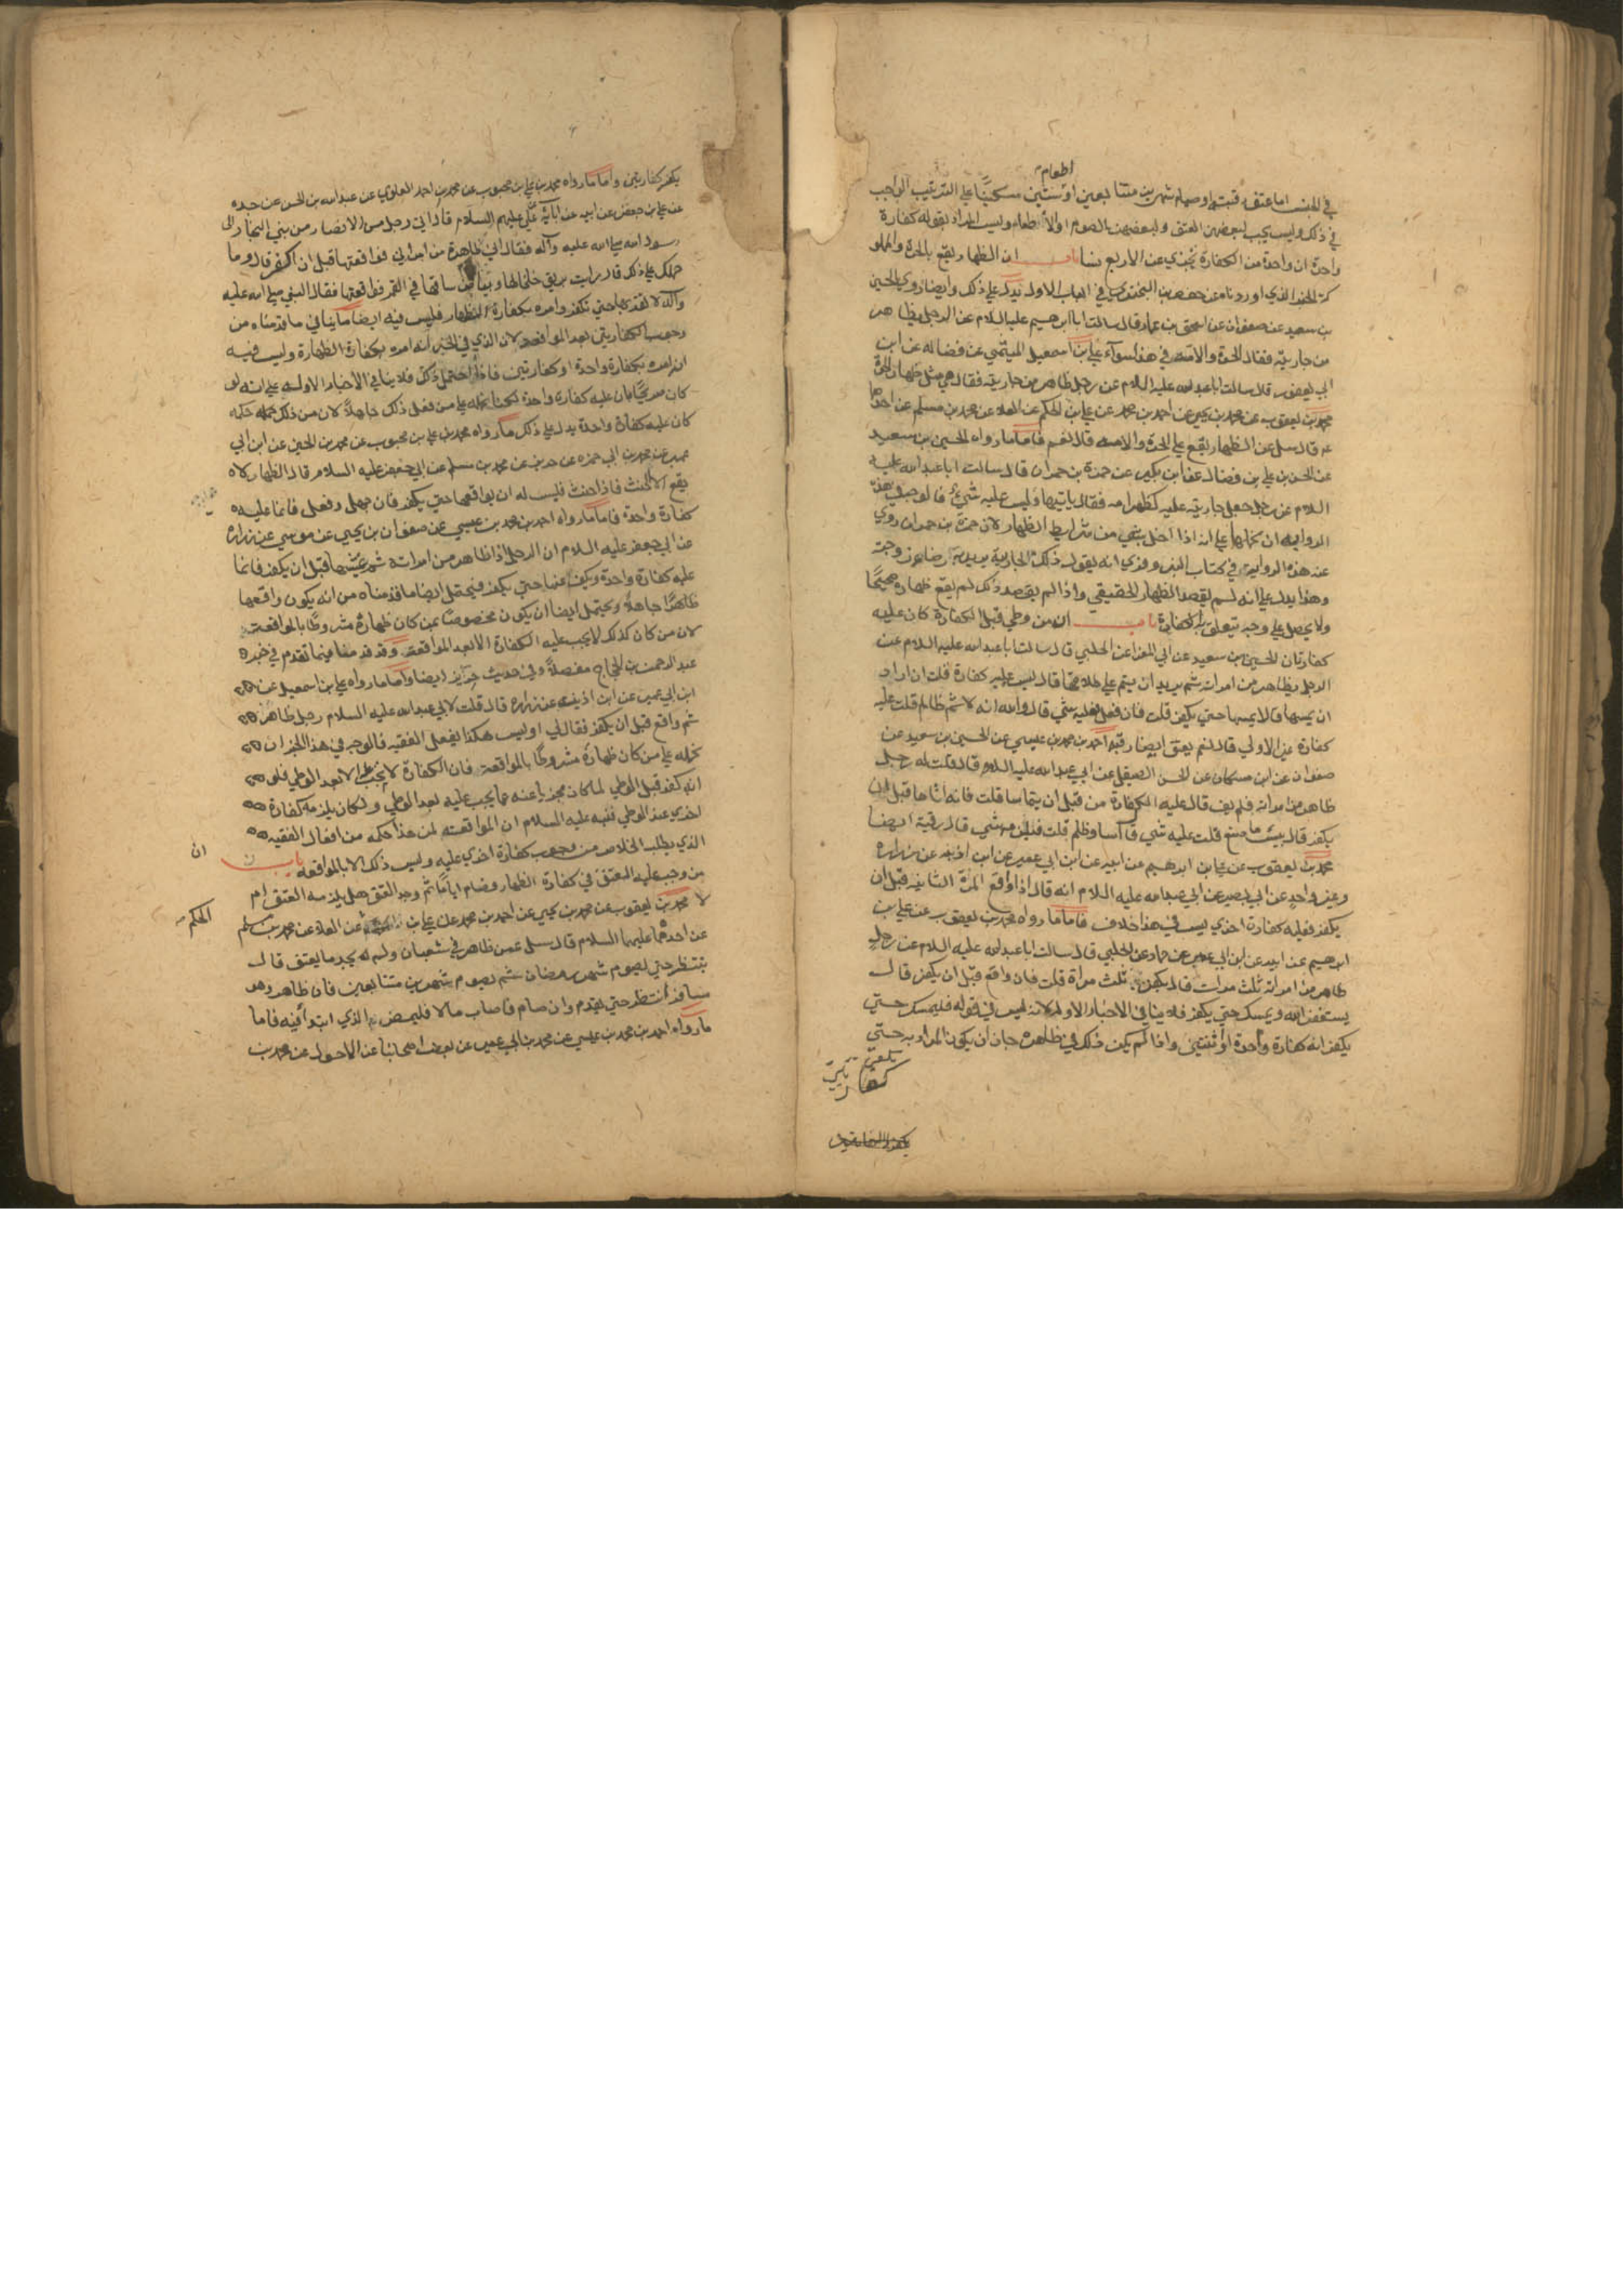 اطعام
في الجنس اما عتق رقبته او صيام شهرين متتابعين او ستين مسكينا على الترتيب الواجب
في ذلك وليس يجب لبعضهن العتق ولبعضهن الصوم او الاطعام وليس المراد بقوله كفارة
واحدة ان واحدة من الكفارة تجزي عن الاربع نسا باب ان الظهار يقع بالحرة والمملو
كة الخبر الذي اوردناه عن حفص بن البختري في الباب الاول يدل على ذلك وايضا روي الحسين
بن سعيد عن صفوان عن اسحق بن عمار قال سالت ابا ابرهيم عليه السلام عن الرجل يظاهر
من جاريته فقال الحرة والامة في هذا سواء علي بن اسمعيل الميثمي عن فضاله عن ابن
ابي يعفور قال سالت ابا عبد الله عليه السلام عن رجل ظاهر من جاريته فقال هي مثل ظهار الحرة
محمد بن يعقوب عن محمد بن يحيى عن احمد بن محمد عن علي بن الحكم عن العلا عن محمد بن مسلم عن احدهما
عم قال سئل عن الظهار يقع على الحرة والامة قال نعم فاما ما رواه الحسين بن سعيد
عن الحسن بن علي بن فضال عن ابن بكير عن حمزة بن حمران قال سالت ابا عبد الله عليه
السلام عن رجل جعل جاريته عليه كظهر امه فقال ياتيها وليس عليه شيء فالوجه في هذه
الرواية ان نحملها على انه اذا اخل بشي من شرايط الظهار لان حمزة بن حمران روي
عنه هذه الرواية في كتاب البزوفري انه يقول ذلك لجارية يريد بها رضا زوجته
وهذا يدل على انه لم يقصد الظهار الحقيقي واذا لم يقصد ذلك لم يقع ظهاره صحيحا
ولا يحصل على وجه تتعلق به الكفارة باب ان من وطي قبل الكفارة كان عليه
كفارتان الحسين بن سعيد عن ابي المغرا عن الحلبي قال سالت ابا عبد الله عليه السلام عن
الرجل يظاهر من امراته ثم يريد ان يتم على طلاقها قال ليس عليه كفارة قلت ان اراد
ان يمسها قال لا يمسها حتي يكفر قلت فان فعل فعليه شي قال والله انه لاثم ظالم قلت عليه
كفارة غير الاولي قال نعم يعتق ايضا رقبة احمد بن محمد بن عيسي عن الحسين بن سعيد عن
صفوان عن ابن مسكان عن الحسن الصيقل عن ابي عبد الله عليه السلام قال قلت له رجل
ظاهر من امراته فلم يف قال عليه الكفارة من قبل ان يتماسا قلت فانه اتاها قبل ان
يكفر قال بئس ما صنع قلت عليه شي قال اسا وظلم قلت فيلزمه شي قال رقبة ايضا
محمد بن يعقوب عن علي بن ابرهيم عن ابيه عن ابن ابي عمير عن ابن اذينه عن زراره
وغير واحد عن ابي بصير عن ابي عبد الله عليه السلام انه قال اذا واقع المرة الثانية قبل ان
يكفر فعليه كفارة اخري ليس في هذا خلاف فاما ما رواه محمد بن يعقوب عن علي بن
ابرهيم عن ابيه عن ابن ابي عمير عن حماد عن الحلبي قال سالت ابا عبد الله عليه السلام عن رجل
ظاهر من امراته ثلث مرات قال يكفر ثلث مراة قلت فان واقع قبل ان يكفر قال
يستغفر الله ويمسك حتي يكفر فلا ينافي الاخبار الاوله لانه ليس في قوله فليمسك حتي
يكفر انه كفارة واحدة او ثنتين واذا لم يكن ذلك في ظاهره جاز ان يكون المراد به حتي
يكفر كفارتين
يكفر كفارتين واما ما رواه محمد بن علي بن محبوب عن محمد بن احمد العلوي عن عبد الله بن الحسن عن جده
عن علي بن جعفر عن ابيه عن ابائه عن علي عليهم السلام قال اتي رجل من الانصار من بني النجار الى
رسول الله صلى الله عليه وآله فقال اني ظاهرت من امراتي فواقعتها قبل ان اكفر قال وما
حملك على ذلك قال رايت بريق خلخالها وبياض ساقها في القمر فواقعتها فقال النبي صلى الله عليه
وآله لا تقربها حتي تكفر وامره بكفارة الظهار فليس فيه ايضا ما ينافي ما قدمناه من
وجوب الكفارتين بعد المواقعة لان الذي في الخبر انه امره بكفارة الظهارة وليس فيه
انه امره بكفارة واحدة او كفارتين فاذا احتمل ذلك فلا ينافي الاخبار الاوله على انه لو
كان صريحا بان عليه كفارة واحدة لكنا نحمله على من فعل ذلك جاهلا لان من ذلك حكمه
كان عليه كفارة واحدة يدل على ذلك ما رواه محمد بن علي بن محبوب عن محمد بن الحسين عن ابن ابي
عمير عن محمد بن ابي حمزه عن حريز عن محمد بن مسلم عن ابي جعفر عليه السلام قال الظهار لا
يقع الا الحنث فاذا حنث فليس له ان يواقعها حتي يكفر فان جهل وفعل فانما عليه
كفارة واحدة فاما ما رواه احمد بن محمد بن عيسي عن صفوان بن يحيى عن موسي عن زراره
عن ابي جعفر عليه السلام ان الرجل اذا ظاهر من امراته ثم غشيها قبل ان يكفر فانما
عليه كفارة واحدة ويكف عنها حتي يكفر فيحتمل ايضا ما قدمناه من انه يكون واقعها
ظاهرا جاهلا ويحتمل ايضا ان يكون مخصوصا بمن كان ظهاره مشروطا بالمواقعة
لان من كان كذلك لا يجب عليه الكفارة الا بعد المواقعة وقد قدمنا فيما تقدم في خبر
عبد الرحمن بن الحجاج مفصلا وفي حديث حريز ايضا واما ما رواه علي بن اسمعيل عن
ابن ابي عمير عن ابن اذينه عن زراره قال قلت لابي عبد الله عليه السلام رجل ظاهر
ثم واقع قبل ان يكفر فقال لي اوليس هكذا يفعل الفقيه فالوجه في هذا الخبر ان
نحمله على من كان ظهاره مشروطا بالمواقعة فان الكفارة لا تجب الا بعد الوطي فلو
انه كفر قبل الوطي لما كان مجزيا عنه عما يجب عليه بعد الوطي ولكان يلزمه كفارة
اخري عند الوطي فنبه عليه السلام ان المواقعة لمن هذا حكمه من افعال الفقيه
الذي يطلب الخلاص من وجوب كفارة اخري عليه وليس ذلك الا بالمواقعه باب ان
من وجب عليه العتق في كفارة الظهار وصام اياما ثم وجد العتق هل يلزمه العتق ام
لا محمد بن يعقوب عن محمد بن يحيى عن احمد بن محمد عن علي بن الحكم عن العلا عن محمد بن مسلم
عن احدهما عليهما السلام قال سئل عمن ظاهر في شعبان ولم له يجد ما يعتق قال
ينتظر حتي يصوم شهر رمضان ثم يصوم شهرين متتابعين فان ظاهر وهو
مسافر انتظر حتي يقدم وان صام فاصاب مالا فليمض الذي ابتدأ فيه فاما
ما رواه احمد بن محمد بن عيسي عن محمد بن ابي عمير عن بعض اصحابنا عن الاحول عن محمد بن